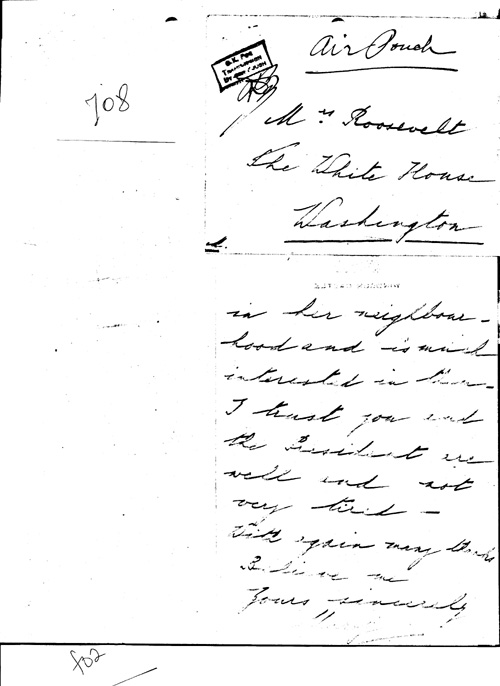 708
Air Pouch
O.K. FOR
Mrs Roosevelt
The White House
Washington
in her neighbour-
hood and is much
interested in them -
I trust you and
the President are
well and not
very tired -
With again many thanks
Believe me
Yours sincerely
702